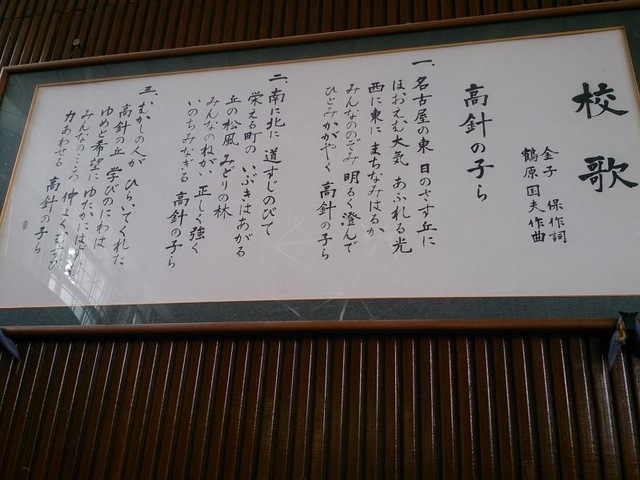 校歌
金子 保作詞
鶴原国夫作曲
高針の子ら
一、名古屋の東 日のさす丘に
ほおえむ大気 あふれる光
西に東に まちなみはるか
みんなののぞみ 明るく澄んで
ひとみかがやく 高針の子ら
二、南に北に 道すじのびて
栄える町の いぶきはあがる
丘の松風 みどりの林
みんなのねがい 正しく強く
いのちみなぎる 高針の子ら
三、むかしの人が ひらいてくれた
高針の丘 学びのにわは
ゆめと希望に ゆたかには
みんなのこころ 仲よくむすび
力あわせる 高針の子ら